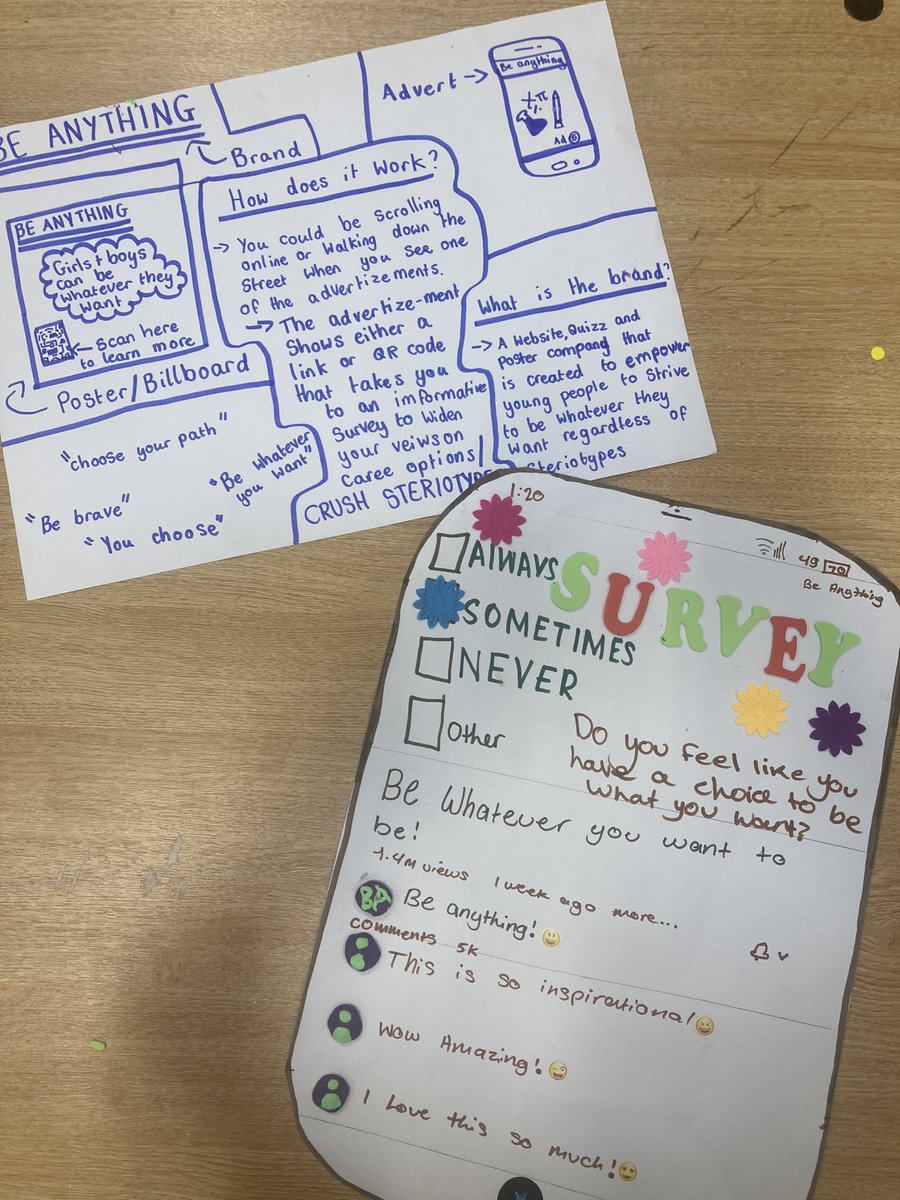 BE ANYTHING
Brand
Advert →
Be anything
Ad
BE ANYTHING
Girls + boys
can be
whatever they
want
scan here
to learn more
Poster/Billboard
"choose your path"
"Be brave"
"You choose"
"Be whatever
you want"
How does it work?
→ You could be scrolling
online or walking down the
Street when you see one
of the advertizements.
→ The advertize-ment
Shows either a
link or QR code
that takes you
to an imformative
Survey to widen
your veiws on
caree options/
CRUSH STERIOTYPES
What is the brand?
→ A Website, Quizz and
Poster company that
is created to empower
young people to Strive
to be whatever they
want regardless of
Steriotypes
1:20
49 70
Be Anything
SURVEY
ALWAYS
SOMETIMES
NEVER
Other
Do you feel like you
have a choice to be
what you want?
Be Whatever you want to
be!
1.4M views 1 week ago more...
BA Be anything!
comments 5k
This is so inspirational
Wow Amazing!
I Love this so much!